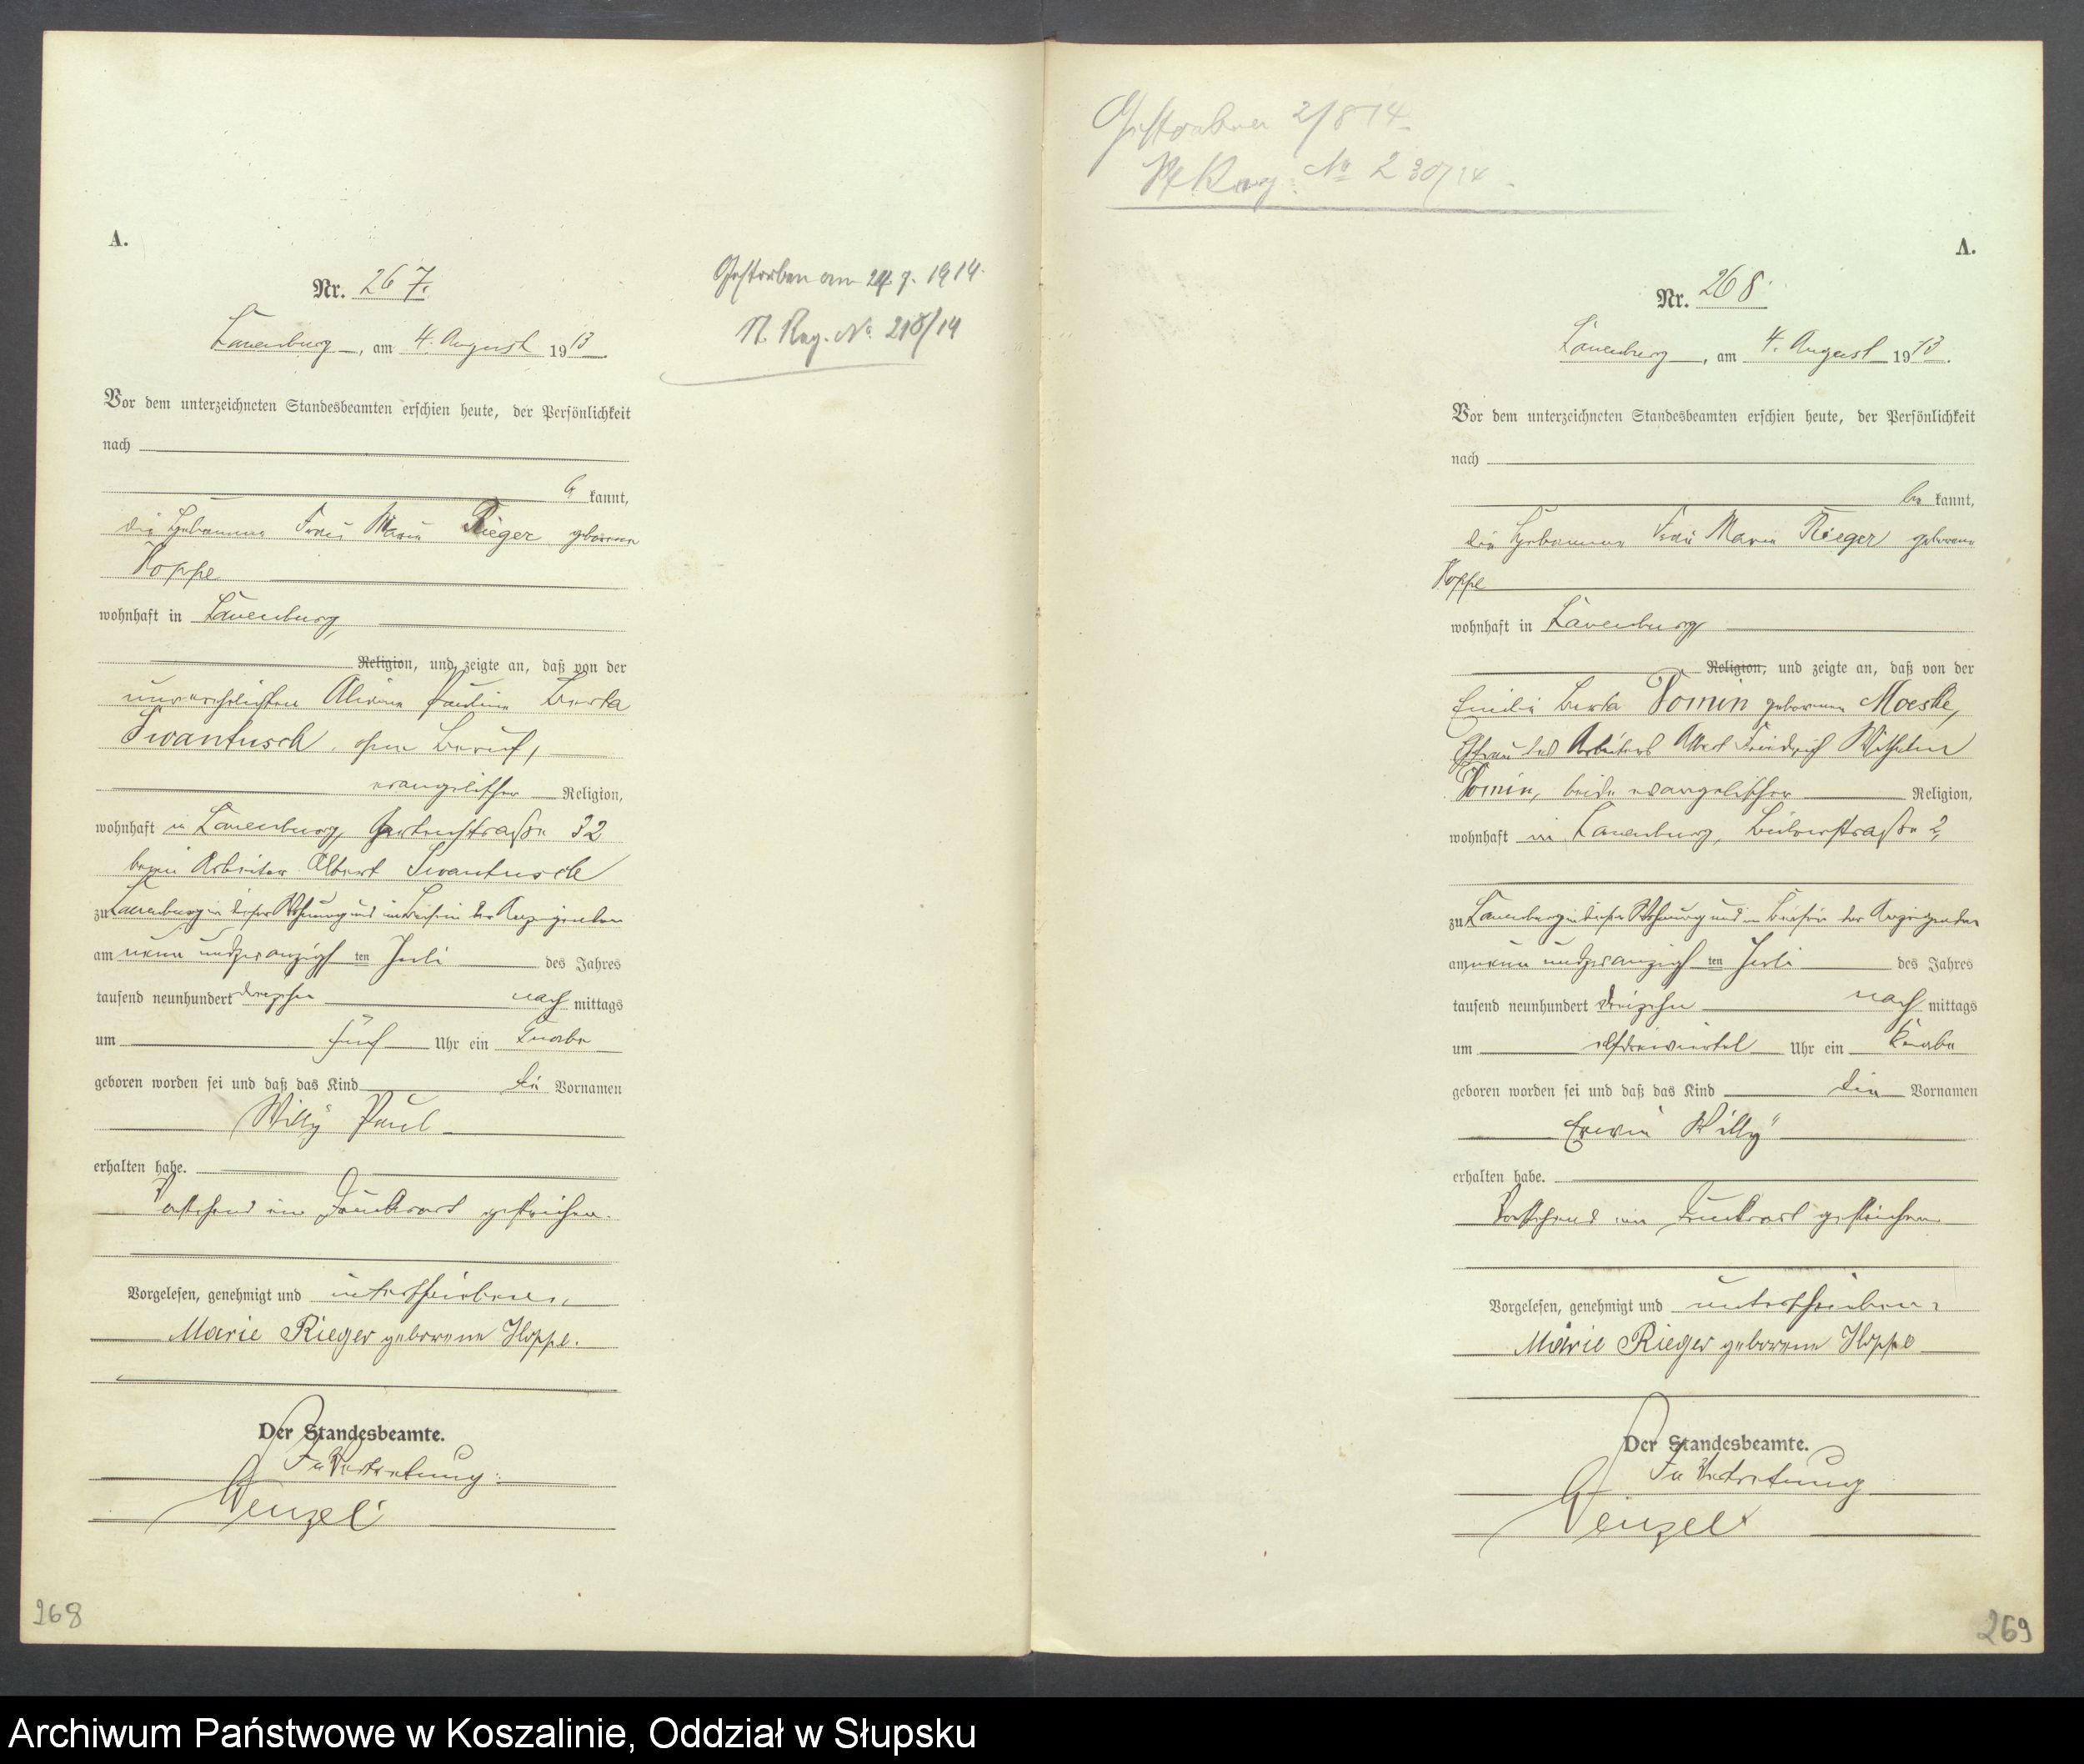 A.
Nr. 267.
Lauenburg, am 4. August 1913.
Gestorben am 24.7.1914.
St. Reg. No. 218/14
Vor dem unterzeichneten Standesbeamten erschien heute, der Persönlichkeit
nach
kannt,
die Hebamme Frau Marie Rieger geborene
Hoppe
wohnhaft in Lauenburg
Religion, und zeigte an, daß von der
unverehelichten Alwine Pauline Berta
Swantusch, ohne Beruf,
evangelischer Religion,
wohnhaft in Lauenburg, Gartenstraße 32
beim Arbeiter Albert Swantusch
zu Lauenburg in dieser Wohnung und im Beisein der Anzeigenden
am neunundzwanzigsten Juli des Jahres
tausend neunhundert dreizehn nachmittags
um fünf Uhr ein Knabe
geboren worden sei und daß das Kind die Vornamen
Willy Paul
erhalten habe.
Vorstehend ein Druckwort gestrichen.
Vorgelesen, genehmigt und unterschrieben.
Marie Rieger geborene Hoppe.
Der Standesbeamte.
In Vertretung:
Wenzel
268
Gestorben 2/8 14.
St. Reg. No 230/14
A.
Nr. 268.
Lauenburg, am 4. August 1913.
Vor dem unterzeichneten Standesbeamten erschien heute, der Persönlichkeit
nach
bekannt,
die Hebamme Frau Marie Rieger geborene
Hoppe
wohnhaft in Lauenburg
Religion, und zeigte an, daß von der
Emilie Berta Pomin geborenen Moeske,
Ehefrau des Arbeiters Albert Friedrich Wilhelm
Pomin, beide evangelischer Religion,
wohnhaft in Lauenburg, 2,
zu Lauenburg in dieser Wohnung und im Beisein der Anzeigenden
am neunundzwanzigsten Juli des Jahres
tausend neunhundert dreizehn nachmittags
um elfdreiviertel Uhr ein Knabe
geboren worden sei und daß das Kind die Vornamen
Erwin Willy
erhalten habe.
Vorstehend ein Druckwort gestrichen
Vorgelesen, genehmigt und unterschrieben.
Marie Rieger geborene Hoppe
Der Standesbeamte.
In Vertretung
Wenzel
269
Archiwum Państwowe w Koszalinie, Oddział w Słupsku